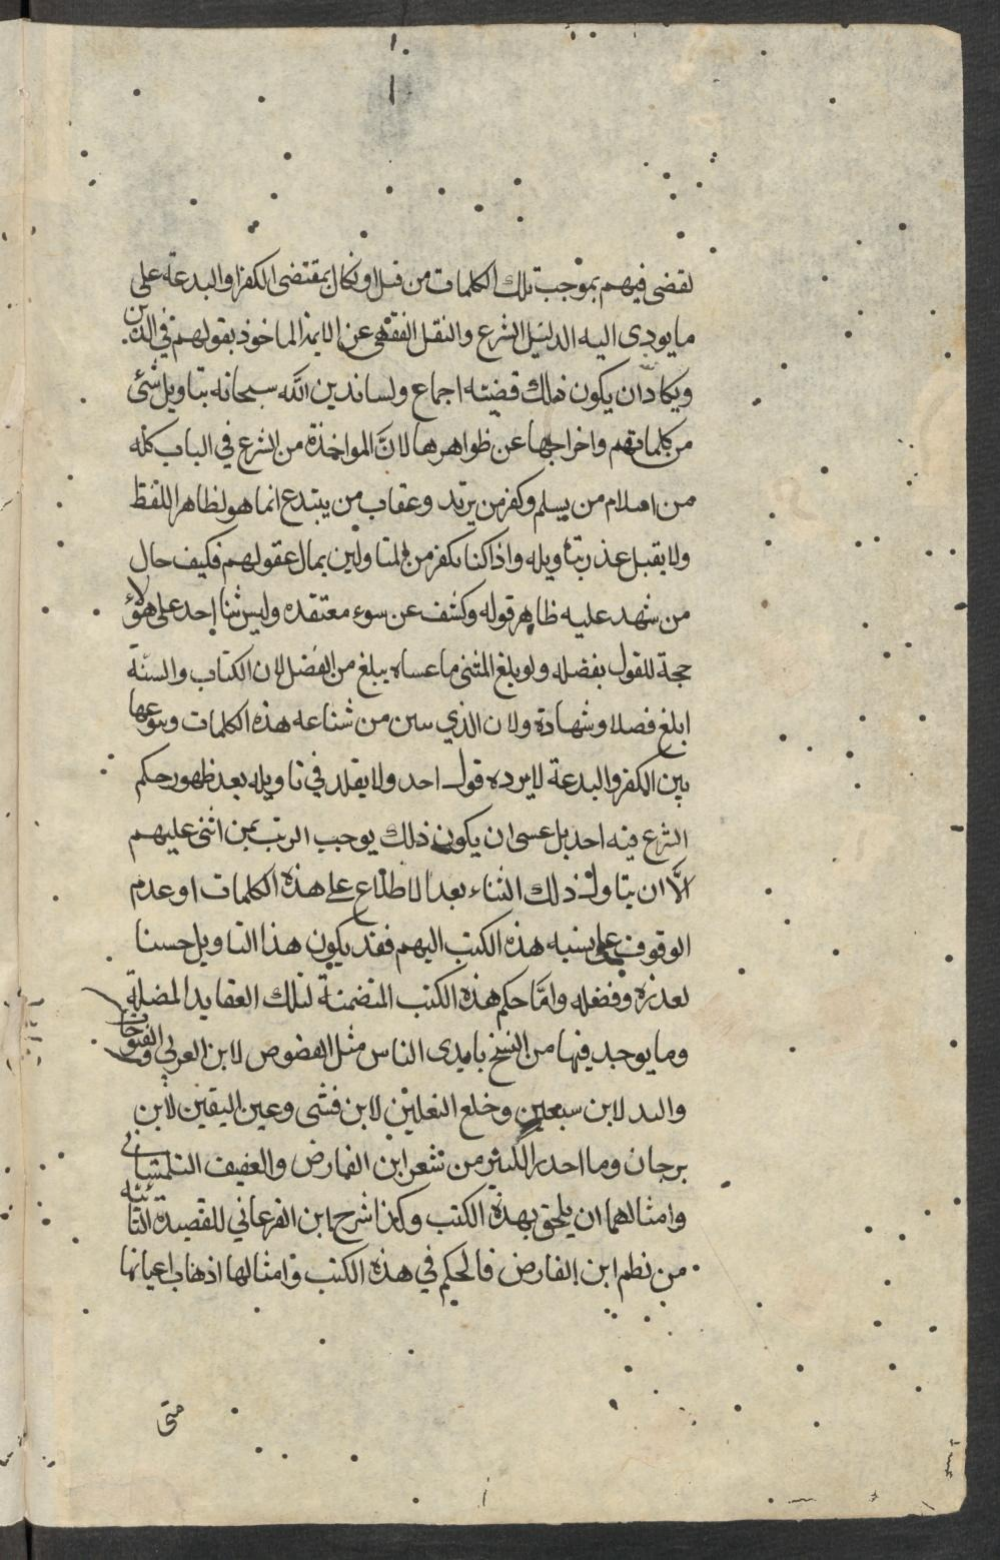 لقضى فيهم بموجب تلك الكلمات من قتل او نكال بمقتضى الكفر او البدعة على
ما يودى اليه الدليل الشرع والنقل الفقهى عن الايمة الماخوذ بقولهم في الدين
ويكاد ان يكون ذلك قضيته اجماع ولسنا ندين الله سبحانه بتاويل شئ
من كلماتهم واخراجها عن ظواهرها لان المواخذة من الشرع في الباب كله
من اسلام من يسلم وكفر من يرتد وعقاب من يبتدع انما هو لظاهر اللفظ
ولا يقبل عذر بتاويله واذا كنا نكفر من المتاولين بمال عقولهم فكيف حال
من شهد عليه ظاهر قوله وكشف عن سوء معتقده وليس ثنا احد على هؤلاء
حجة للقول بفضله ولو بلغ المثنى ما عساه يبلغ من الفضل لان الكتاب والسنة
ابلغ فضلا وشهادة ولان الذي سن من شناعه هذه الكلمات
بين الكفر والبدعة لا يرده قول احد ولا يقلد في تاويله بعد ظهور حكم
الشرع فيه احد بل عسى ان يكون ذلك يوجب الريب بمن اثنى عليهم
الا ان يتاول ذلك الثناء بعد الاطلاع على هذه الكلمات او عدم
الوقوف على نسبه هذه الكتب اليهم فقد يكون هذا التاويل حسنا
لعدنه وفضله واما حكم هذه الكتب المتضمنة لتلك العقايد المضلة
وما يوجد فيها من النسخ بايدى الناس مثل الفصوص لابن العربي والفتوحات
والبد لابن سبعين وخلع النعلين لابن قشى وعين اليقين لابن
برجان وما احدر الكثير من شعر ابن الفارض والعفيف التلمسانى
وامثالهما ان يلحق بهذه الكتب وكذا شرح ابن الفرغاني للقصيدة التائية
من نظم ابن الفارض فالحكم في هذه الكتب وامثالها اذهاب اعيانها
متى